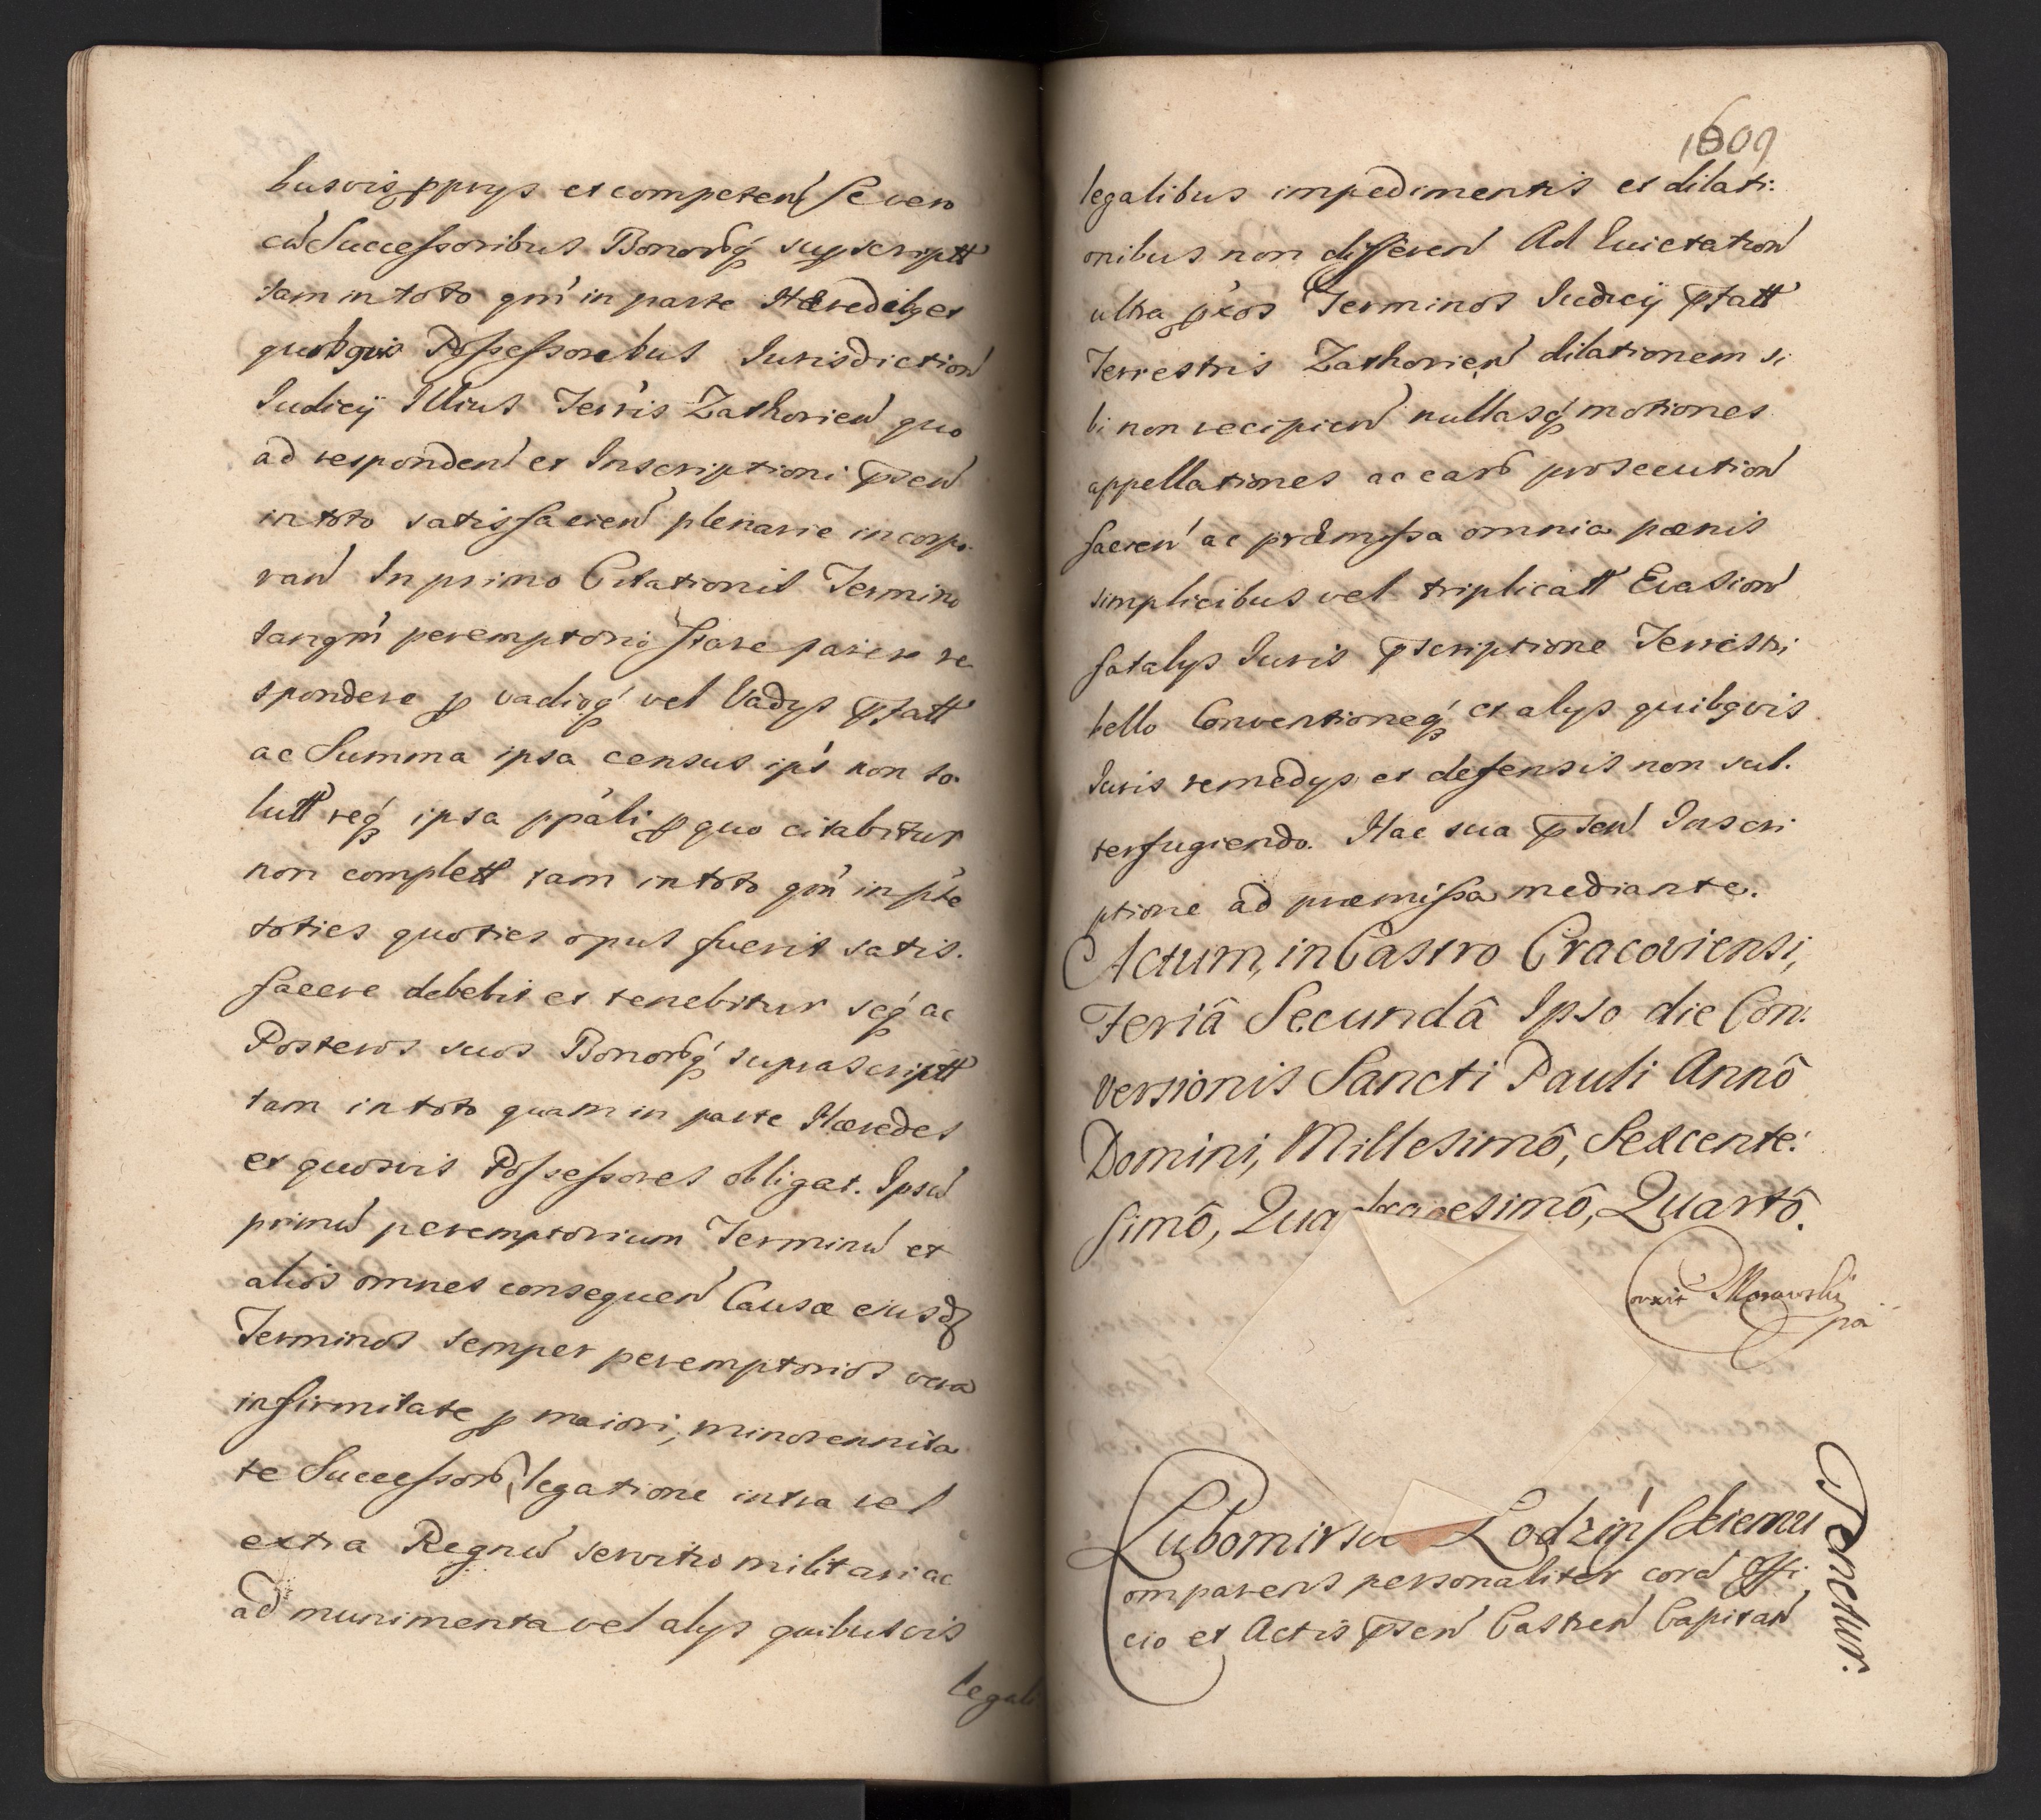 busvis pprys et competen̄ se vero
cū Successoribus Bonorūq́ supscriptt
tam in toto qm̄ in parte Hæredibq et
quobqvis Possessoribus Iurisdiction̄
Iudicÿ Illius Terr̄is Zathorien̄ quo
ad responden̄ et Inscriptioni pn̄sen̄
in toto satisfacien̄ plenarie incorpo
ran̄ In primo Citationis Termino
tanqm̄ peremptorio stare parere re
spondere p vadioq́ vel Vadys pnstatt
ac Summa ipsa census ips̄ non so
lutt req́ ipsa pp̄ali p quo citabitur
non complett tam in toto qm̄ in pt̄e
toties quoties opus fuerit satis.
facere debebit et tenebitur seq́ ac
Posteros suos Bonorūq́ suprascriptt
tam in toto quam in parte Hæredes
et quosvis Possessores obligat. Ipsū
primū peremptorium Terminū et
alios omnes consequen̄ Causæ eiusd
Terminos semper peremptorios vera
infirmitate p maiori, minorennita
te Successorū, legatione intra vel
extra Regnū servitio militari ac
ad munimenta vel alys quibusvis
legali
1609
legalibus impedimentis et dilati:
onibus non differen̄ Ad Euictation̄
ultra pr̄xos Terminos Iudicÿ pn̄statt
Terrestris Zathorien̄ dilationem si
bi non recipien̄ nullasq́ motiones
appellationes ac earū prosecution̄
facien̄ ac præmissa omnia pænis
simplicibus vel triplicatt Evasion̄
fatalys Iuris pn̄scriptione Terrestri
bello Conventioneq́ et alys quibqvis
Iuris remedys et defensis non sub.
terfugiendo. Hac sua pn̄sen̄ Inscri
ptione ad præmissa mediante.
Actum, in Castro Cracoviensi,
Feriâ Secundâ Ipso die Con:
versionis Sancti Pauli Annô
Domini, Millesimô, Sexcente:
simô, Quadragesimô, Quartô.
Corexit Morawski
pa
Lubomirsci Lodzińskiemu
Comparens personaliter corā Offi
cio et Actis pn̄sen̄ Castren̄ Capitan̄